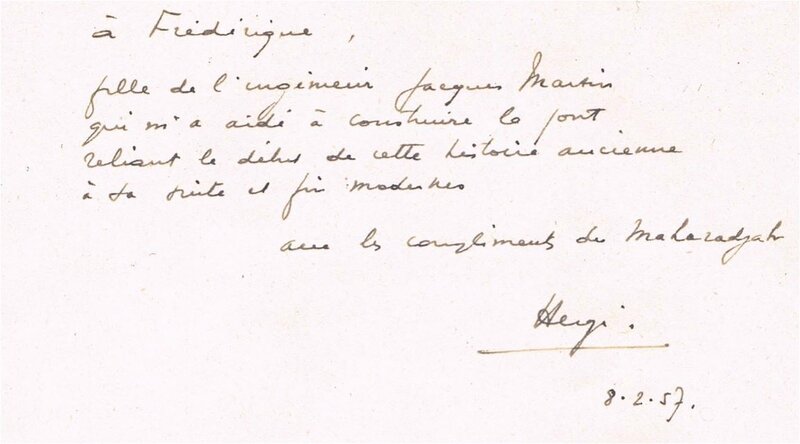 à Frédérique,
fille de l'ingénieur Jacques Martin
qui m'a aidé à construire le pont
reliant le début de cette histoire ancienne
à sa suite et fin modernes
avec les compliments du Maharadjah
Hergé.
8.2.57.